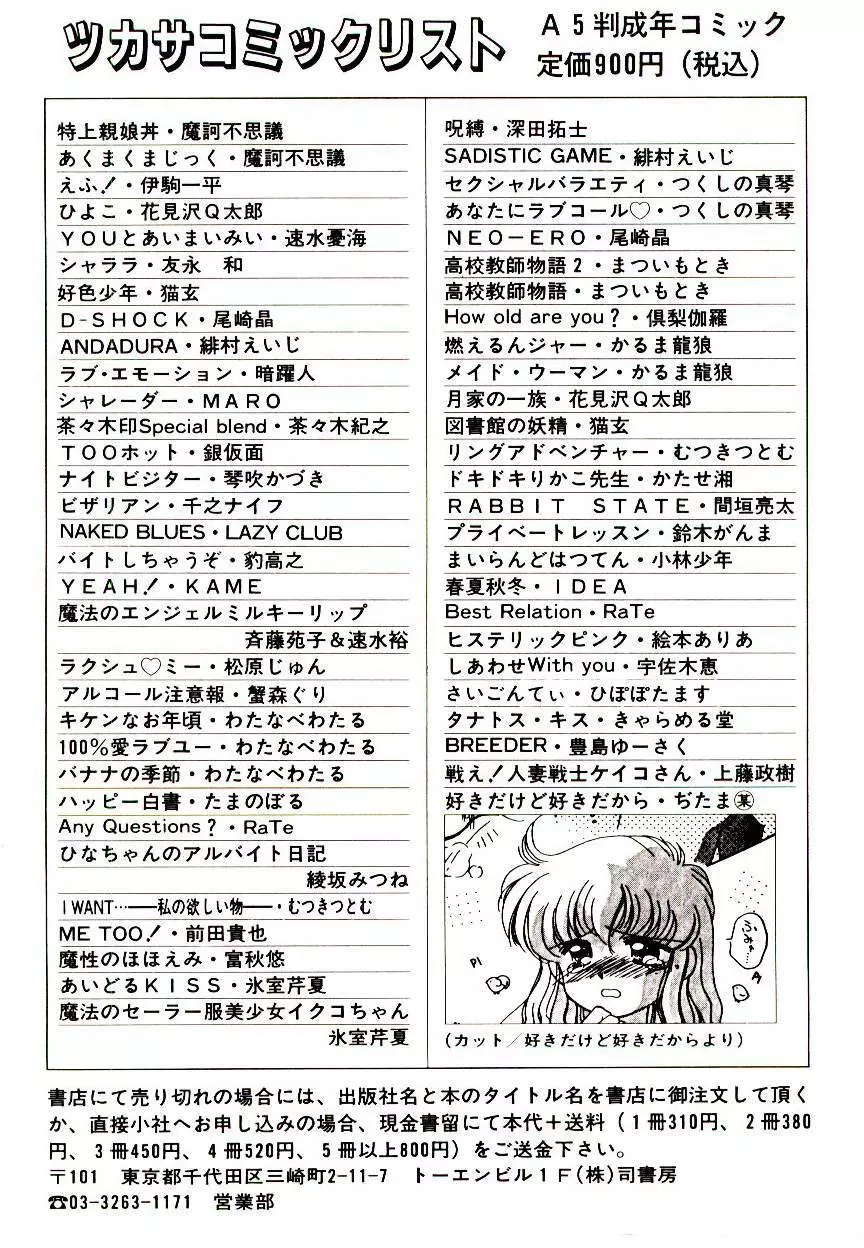 ツカサコミックリスト
A5判成年コミック
定価900円(税込)
特上親娘丼・魔訶不思議
あくまくまじっく・魔訶不思議
えふ!・伊駒一平
ひよこ・花見沢Q太郎
YOUとあいまいみい・速水憂海
シャララ・友永 和
好色少年・猫玄
D-SHOCK・尾崎晶
ANDADURA・緋村えいじ
ラブ・エモーション・暗躍人
シャレーダー・MARO
茶々木印Special blend・茶々木紀之
TOOホット・銀仮面
ナイトビジター・琴吹かづき
ビザリアン・千之ナイフ
NAKED BLUES・LAZY CLUB
バイトしちゃうぞ・豹高之
YEAH!・KAME
魔法のエンジェルミルキーリップ
斉藤苑子&速水裕
ラクシュ♡ミー・松原じゅん
アルコール注意報・蟹森ぐり
キケンなお年頃・わたなべわたる
100%愛ラブユー・わたなべわたる
バナナの季節・わたなべわたる
ハッピー白書・たまのぼる
Any Questions?・RaTe
ひなちゃんのアルバイト日記
綾坂みつね
I WANT…――私の欲しい物――・むつきつとむ
ME TOO!・前田貴也
魔性のほほえみ・富秋悠
あいどるKISS・氷室芹夏
魔法のセーラー服美少女イクコちゃん
氷室芹夏
呪縛・深田拓士
SADISTIC GAME・緋村えいじ
セクシャルバラエティ・つくしの真琴
あなたにラブコール♡・つくしの真琴
NEO-ERO・尾崎晶
高校教師物語2・まついもとき
高校教師物語・まついもとき
How old are you?・倶梨伽羅
燃えるんジャー・かるま龍狼
メイド・ウーマン・かるま龍狼
月家の一族・花見沢Q太郎
図書館の妖精・猫玄
リングアドベンチャー・むつきつとむ
ドキドキりかこ先生・かたせ湘
RABBIT STATE・間垣亮太
プライベートレッスン・鈴木がんま
まいらんどはつてん・小林少年
春夏秋冬・IDEA
Best Relation・RaTe
ヒステリックピンク・絵本ありあ
しあわせWith you・宇佐木恵
さいごんてぃ・ひぽぽたます
タナトス・キス・きゃらめる堂
BREEDER・豊島ゆーさく
戦え!人妻戦士ケイコさん・上藤政樹
好きだけど好きだから・ぢたま㊣某
ふみゃ…
(カット/好きだけど好きだからより)
書店にて売り切れの場合には、出版社名と本のタイトル名を書店に御注文して頂く
か、直接小社へお申し込みの場合、現金書留にて本代+送料(1冊310円、2冊380
円、3冊450円、4冊520円、5冊以上800円)をご送金下さい。
〒101 東京都千代田区三崎町2-11-7 トーエンビル1F(株)司書房
☎03-3263-1171 営業部